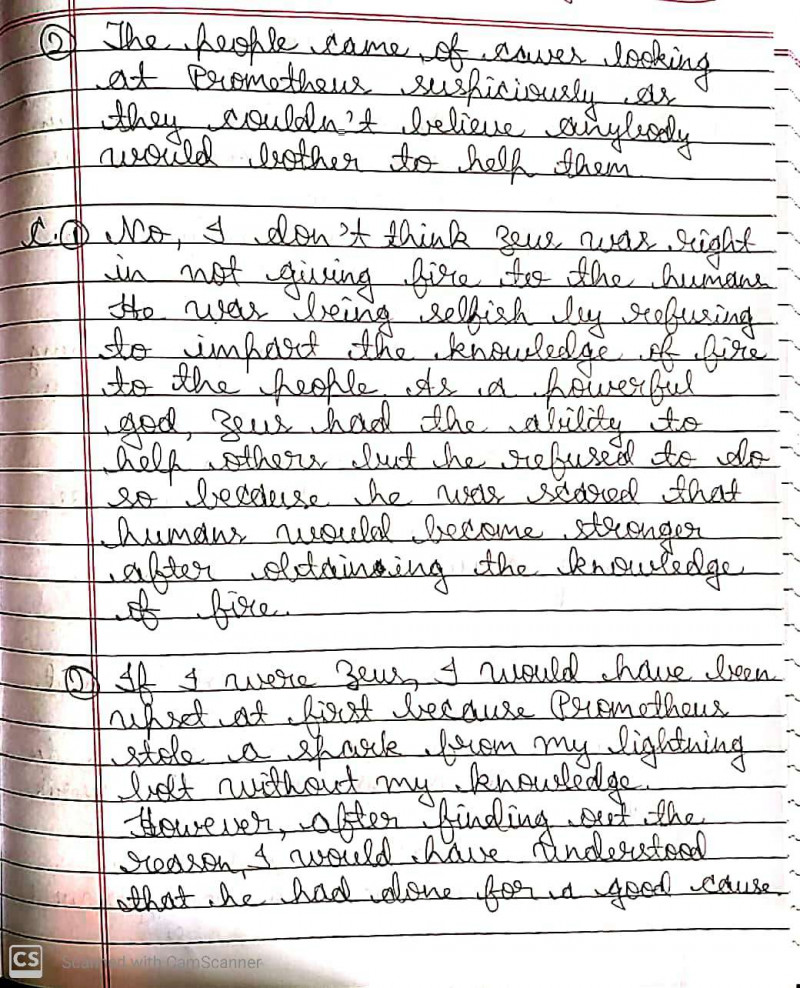 ② The people came of caves looking
at Prometheus suspiciously as
they couldn't believe anybody
would bother to help them
C.① No, I don't think Zeus was right
in not giving fire to the humans
He was being selfish by refusing
to impart the knowledge of fire
to the people. As a powerful
god, Zeus had the ability to
help others but he refused to do
so because he was scared that
humans would become stronger
after obtaining the knowledge
of fire.
② If I were Zeus, I would have been
upset at first because Prometheus
stole a spark from my lightning
bolt without my knowledge.
However, after finding out the
reason, I would have understood
that he had done for a good cause
CS Scanned with CamScanner